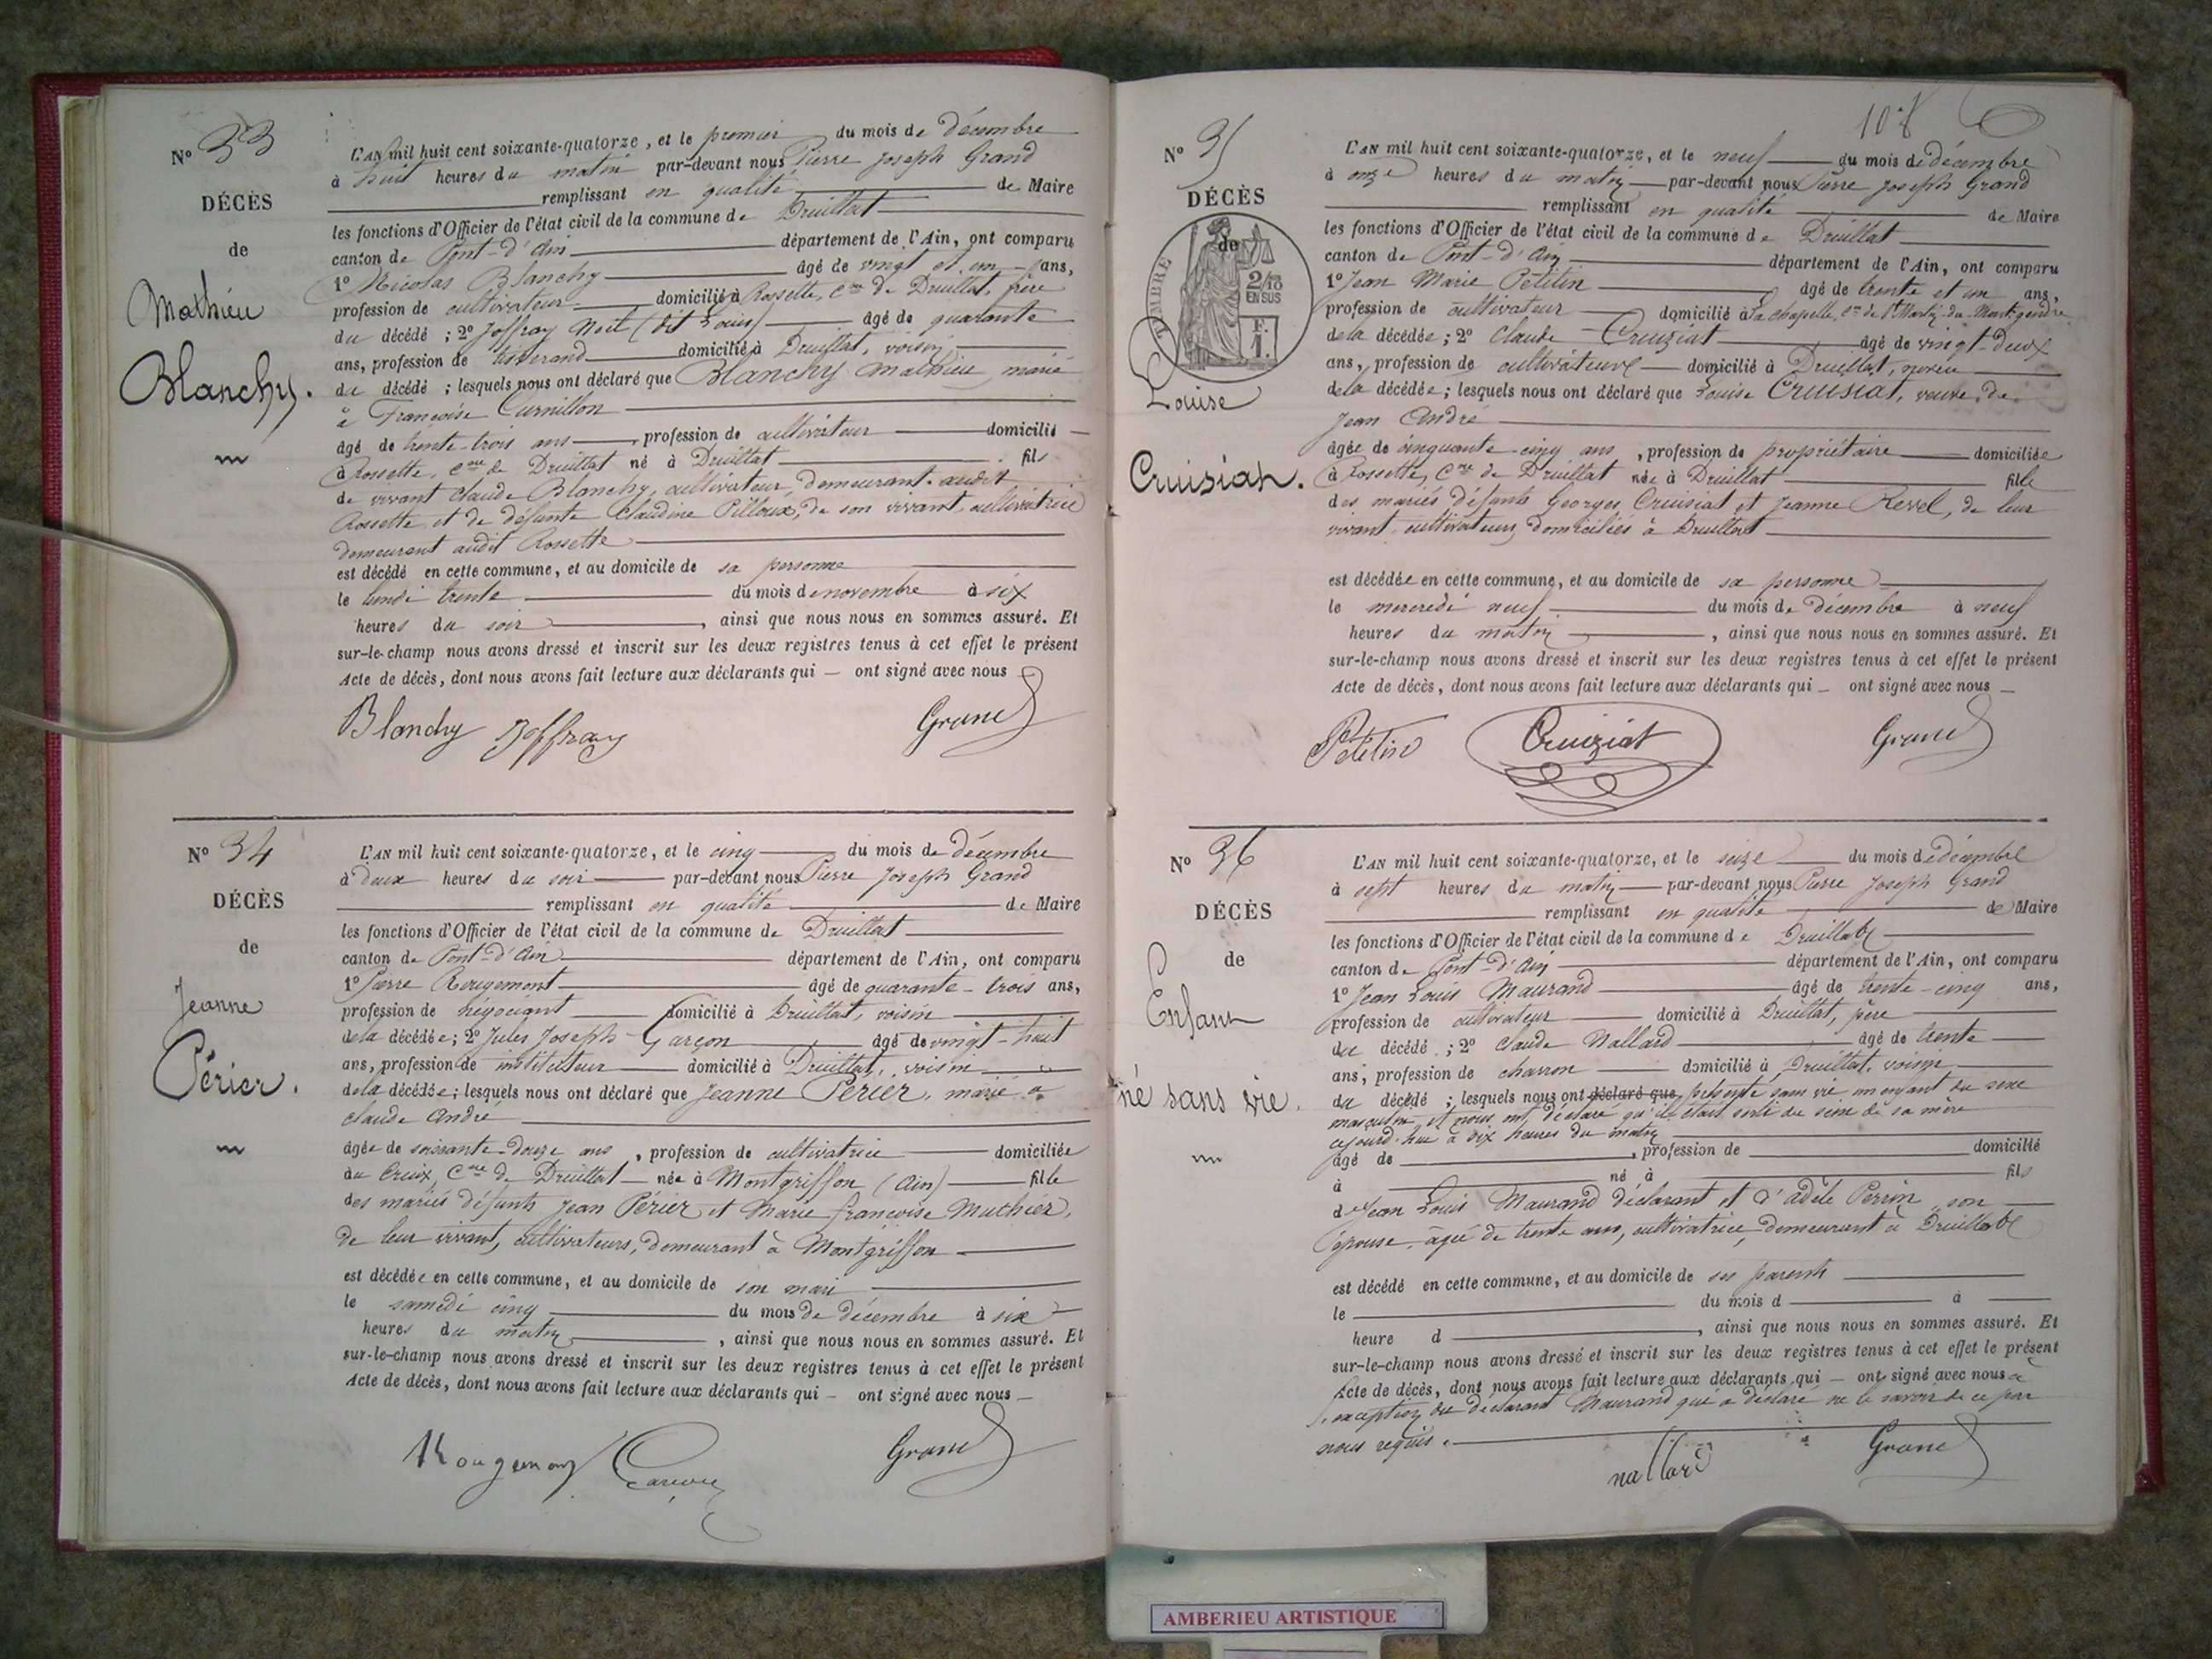 N° 33
DÉCÈS
de
Mathieu
Blanchy.
L'AN mil huit cent soixante-quatorze, et le premier du mois de décembre
à huit heures du matin par-devant nous Pierre Joseph Grand
remplissant en qualité de Maire
les fonctions d'Officier de l'état civil de la commune de Druillat
canton de Pont-d'Ain département de l'Ain, ont comparu
1° Nicolas Blanchy âgé de vingt et un ans,
profession de cultivateur domicilié à Rossette, Cne de Druillat, frère
du décédé ; 2° Joffray Noël (dit Louis) âgé de quarante
ans, profession de tisserand domicilié à Druillat, voisin
du décédé ; lesquels nous ont déclaré que Blanchy Mathieu, marié
à Françoise Curnillon
âgé de trente-trois ans, profession de cultivateur domicilié
à Rossette, Cne de Druillat né à Druillat fils
de vivant Claude Blanchy, cultivateur, demeurant audit
Rossette et de défunte Claudine Pilloux, de son vivant cultivatrice
demeurant audit Rossette
est décédé en cette commune, et au domicile de sa personne
le lundi trente du mois de novembre à six
heures du soir, ainsi que nous nous en sommes assuré. Et
sur-le-champ nous avons dressé et inscrit sur les deux registres tenus à cet effet le présent
Acte de décès, dont nous avons fait lecture aux déclarants qui — ont signé avec nous
Blanchy Joffray Grand
N° 34
DÉCÈS
de
Jeanne
Périer.
L'AN mil huit cent soixante-quatorze, et le cinq du mois de décembre
à deux heures du soir par-devant nous Pierre Joseph Grand
remplissant en qualité de Maire
les fonctions d'Officier de l'état civil de la commune de Druillat
canton de Pont-d'Ain département de l'Ain, ont comparu
1° Pierre Rougemont âgé de quarante-trois ans,
profession de négociant domicilié à Druillat, voisin
de la décédée ; 2° Jules Joseph Garçon âgé de vingt-huit
ans, profession de instituteur domicilié à Druillat, voisin
de la décédée ; lesquels nous ont déclaré que Jeanne Périer, marié à
Claude André
âgée de soixante-douze ans, profession de cultivatrice domiciliée
au Creux, Cne de Druillat née à Montgriffon (Ain) fille
des mariés défunts Jean Périer et Marie françoise Muthier,
de leur vivant, cultivateurs, demeurant à Montgriffon
est décédée en cette commune, et au domicile de son mari
le samedi cinq du mois de décembre à six
heures du matin, ainsi que nous nous en sommes assuré. Et
sur-le-champ nous avons dressé et inscrit sur les deux registres tenus à cet effet le présent
Acte de décès, dont nous avons fait lecture aux déclarants qui — ont signé avec nous
Rougemont Garçon Grand
108
N° 35
DÉCÈS
de
TIMBRE
2/10
EN SUS
F.
1.
Louise
Cruisiat.
L'AN mil huit cent soixante-quatorze, et le neuf du mois de décembre
à onze heures du matin par-devant nous Pierre Joseph Grand
remplissant en qualité de Maire
les fonctions d'Officier de l'état civil de la commune de Druillat
canton de Pont-d'Ain département de l'Ain, ont comparu
1° Jean Marie Petitin âgé de trente et un ans,
profession de cultivateur domicilié à La chapelle, Cne de St Martin-du-Mont, gendre
de la décédée ; 2° Claude Cruiziat âgé de vingt-deux
ans, profession de cultivateur domicilié à Druillat, neveu
de la décédée ; lesquels nous ont déclaré que Louise Cruisiat, veuve de
Jean André
âgée de cinquante cinq ans, profession de propriétaire domiciliée
à Rossette, Cne de Druillat née à Druillat fille
des mariés défunts Georges Cruisiat et Jeanne Revel, de leur
vivant cultivateurs, domiciliés à Druillat
est décédée en cette commune, et au domicile de sa personne
le mercredi neuf du mois de décembre à neuf
heures du matin, ainsi que nous nous en sommes assuré. Et
sur-le-champ nous avons dressé et inscrit sur les deux registres tenus à cet effet le présent
Acte de décès, dont nous avons fait lecture aux déclarants qui — ont signé avec nous
Petitin Cruiziat Grand
N° 36
DÉCÈS
de
Enfant
né sans vie.
L'AN mil huit cent soixante-quatorze, et le seize du mois de décembre
à sept heures du matin par-devant nous Pierre Joseph Grand
remplissant en qualité de Maire
les fonctions d'Officier de l'état civil de la commune de Druillat
canton de Pont-d'Ain département de l'Ain, ont comparu
1° Jean Louis Maurand âgé de trente-cinq ans,
profession de cultivateur domicilié à Druillat, père
du décédé ; 2° Claude Nallard âgé de trente
ans, profession de charron domicilié à Druillat, voisin
du décédé ; lesquels nous ont déclaré que présenté sans vie un enfant du sexe
masculin et nous ont déclaré qu'il était sorti du sein de sa mère
cejourd'hui à six heures du matin
âgé de, profession de domicilié
à né à fils
de Jean Louis Maurand déclarant et d'adèle Perrin son
épouse, âgée de trente ans, cultivatrice, demeurant à Druillat
est décédé en cette commune, et au domicile de ses parents
le du mois d à
heure d, ainsi que nous nous en sommes assuré. Et
sur-le-champ nous avons dressé et inscrit sur les deux registres tenus à cet effet le présent
Acte de décès, dont nous avons fait lecture aux déclarants qui — ont signé avec nous à
l'exception du déclarant Maurand qui a déclaré ne le savoir de ce par
nous requis.
nallard Grand
AMBERIEU ARTISTIQUE